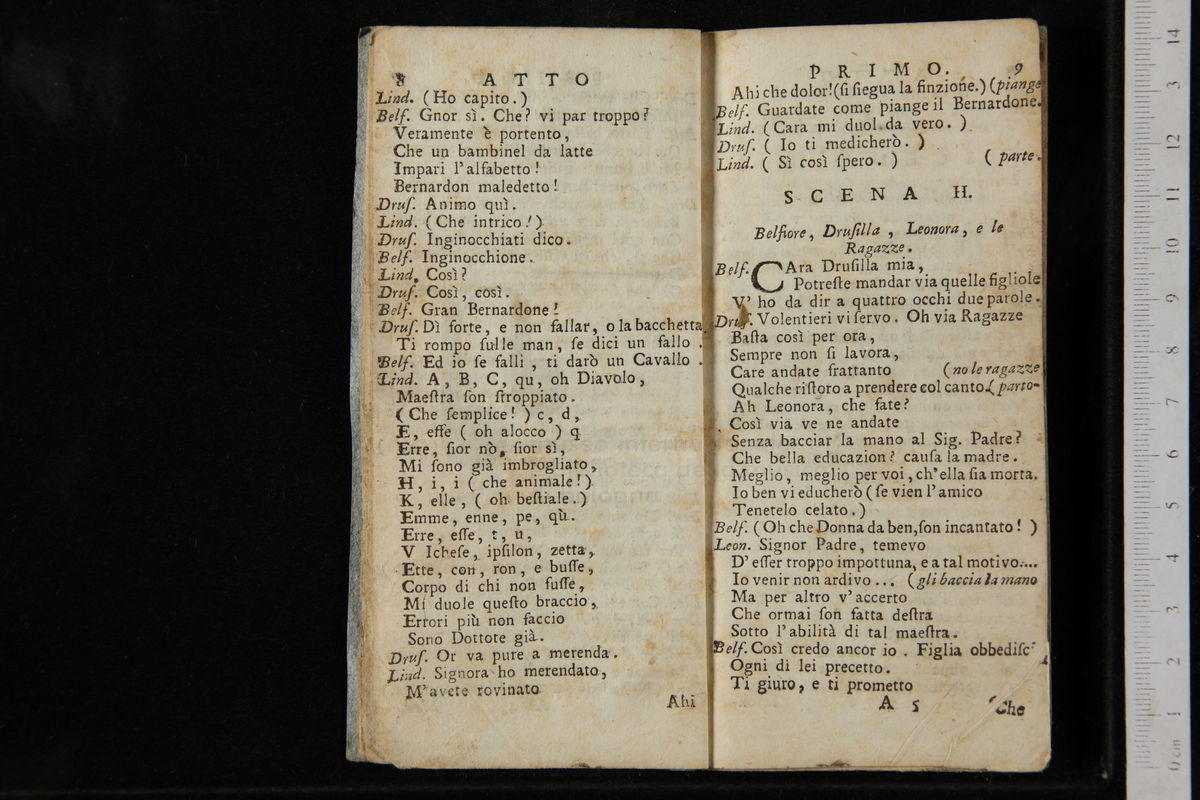 8 ATTO
Lind. (Ho capito.)
Belf. Gnor sì. Che? vi par troppo?
Veramente è portento,
Che un bambinel da latte
Impari l'alfabetto!
Bernardon maledetto!
Druſ. Animo quì.
Lind. (Che intrico!)
Druſ. Inginocchiati dico.
Belf. Inginocchione.
Lind. Così?
Druſ. Così, così.
Belf. Gran Bernardone!
Druſ. Dì forte, e non fallar, o la bacchetta
Ti rompo ſulle man, ſe dici un fallo.
Belf. Ed io ſe falli, ti darò un Cavallo.
Lind. A, B, C, qu, oh Diavolo,
Maeſtra ſon ſtroppiato.
(Che ſemplice!) c, d,
E, effe (oh alocco) q
Erre, ſior nò, ſior sì,
Mi ſono già imbrogliato,
H, i, i (che animale!)
K, elle, (oh beſtiale.)
Emme, enne, pe, qù.
Erre, eſſe, t, u,
V Icheſe, ipſilon, zetta,
Ette, con, ron, e buſſe,
Corpo di chi non fuſſe,
Mi duole queſto braccio,
Errori più non faccio
Sono Dottote già.
Druſ. Or va pure a merenda.
Lind. Signora ho merendato,
M'avete rovinato
Ahi
PRIMO. 9
Ahi che dolor! (ſi ſiegua la finzione.) (piange
Belf. Guardate come piange il Bernardone.
Lind. (Cara mi duol da vero.)
Druſ. (Io ti medicherò.)
Lind. (Sì così ſpero.) (parte.
SCENA II.
Belfiore, Druſilla, Leonora, e le
Ragazze.
Belf. CAra Druſilla mia,
Potreſte mandar via quelle figliole
V' ho da dir a quattro occhi due parole.
Druſ. Volentieri vi ſervo. Oh via Ragazze
Baſta così per ora,
Sempre non ſi lavora,
Care andate frattanto (no le ragazze
Qualche riſtoro a prendere col canto. (parto-
Ah Leonora, che fate?
Così via ve ne andate
Senza bacciar la mano al Sig. Padre?
Che bella educazion? cauſa la madre.
Meglio, meglio per voi, ch'ella ſia morta.
Io ben vi educherò (ſe vien l'amico
Tenetelo celato.)
Belf. (Oh che Donna da ben, ſon incantato!)
Leon. Signor Padre, temevo
D'eſſer troppo impottuna, e a tal motivo....
Io venir non ardivo ... (gli baccia la mano
Ma per altro v'accerto
Che ormai ſon fatta deſtra
Sotto l'abilità di tal maeſtra.
Belf. Così credo ancor io. Figlia obbediſc
Ogni di lei precetto.
Ti giuro, e ti prometto
A 5 Che